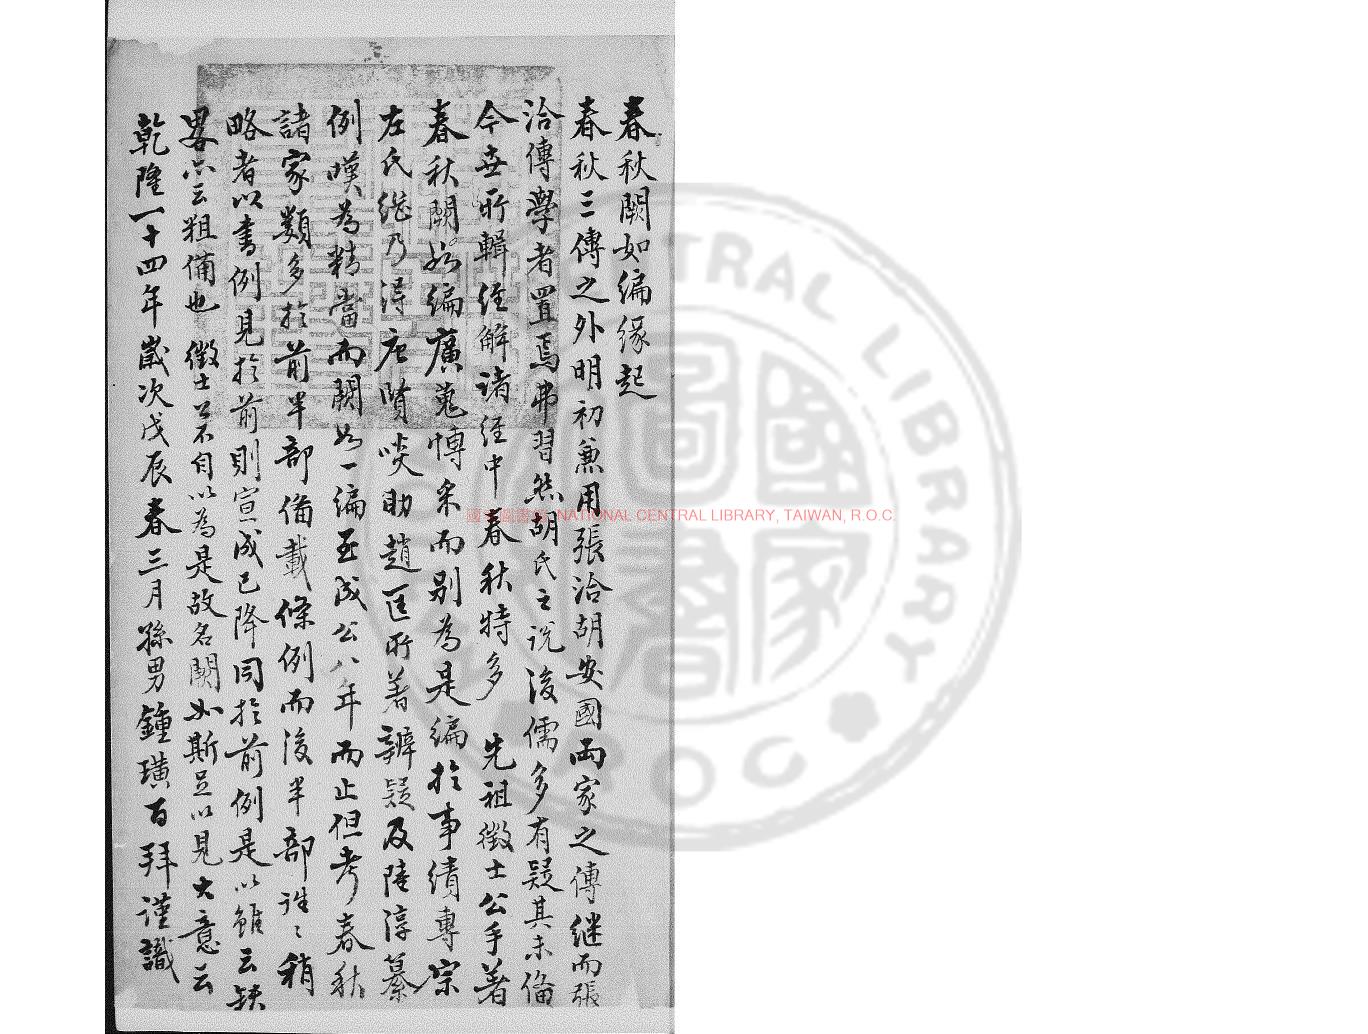 春秋闕如編緣起
春秋三傳之外明初兼用張洽胡安國兩家之傳継而張
洽傳學者置焉弗習然胡氏之說後儒多有疑其未備
今世所輯經解諸經中春秋特多 先祖徵士公手著
春秋闕如編廣蒐愽采而别為是編於事績專宗
左氏継乃淂唐賢啖助趙匡所著辨疑及陸淳纂
例嘆為精當而闕如一編至成公八年而止但考春秋
諸家類多於前半部備載條例而後半部詳之稍
略者以書例見於前則宣成已降同於前例是以雖云缺
畧亦云粗備也 徵士公不自以為是故名闕如斯足以見大意云
乾隆一十四年歲次戊辰春三月孫男鍾璜百拜謹識
國家圖書館 NATIONAL CENTRAL LIBRARY, TAIWAN, R.O.C.